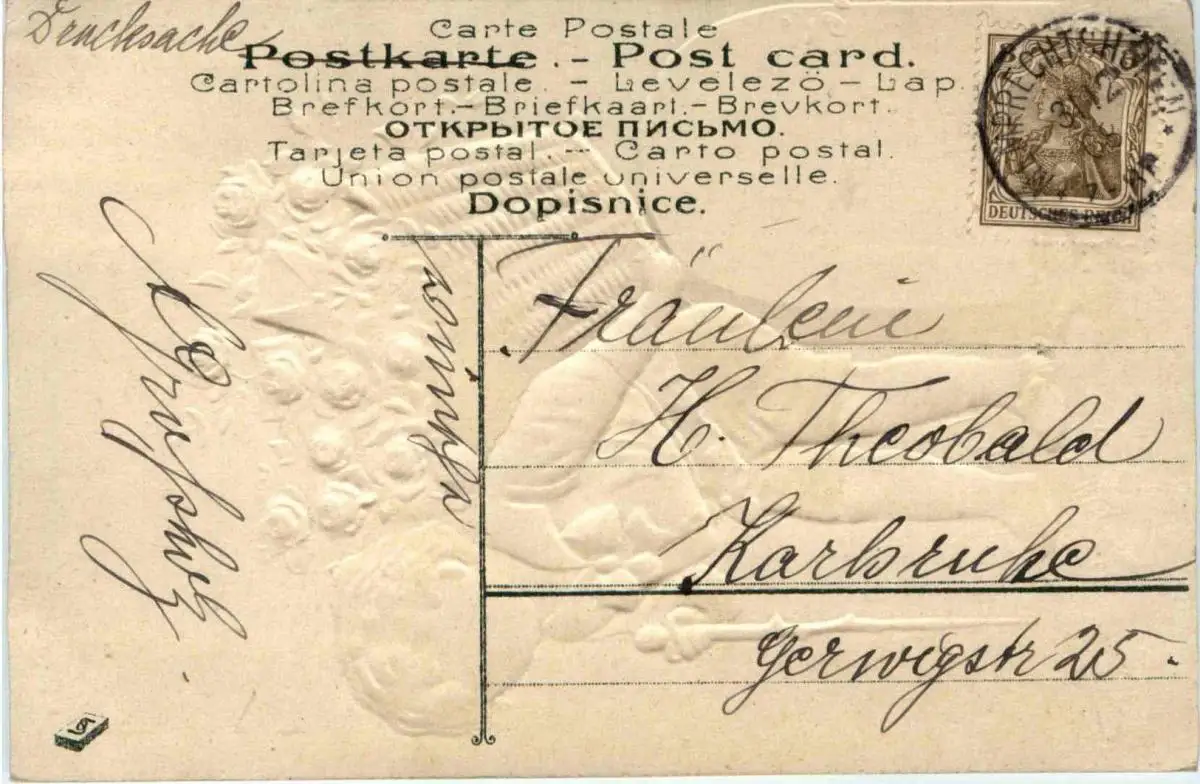 Drucksache
Carte Postale
Postkarte. - Post card.
Cartolina postale. - Levelezö - Lap.
Brefkort.-Briefkaart.-Brevkort.
ОТКРЫТОЕ ПИСЬМО.
Tarjeta postal. -- Carto postal.
Union postale universelle.
Dopisnice.
DEUTSCHES REICH
Fräulein
H. Theobald
Karlsruhe
Gerwigstr 25.